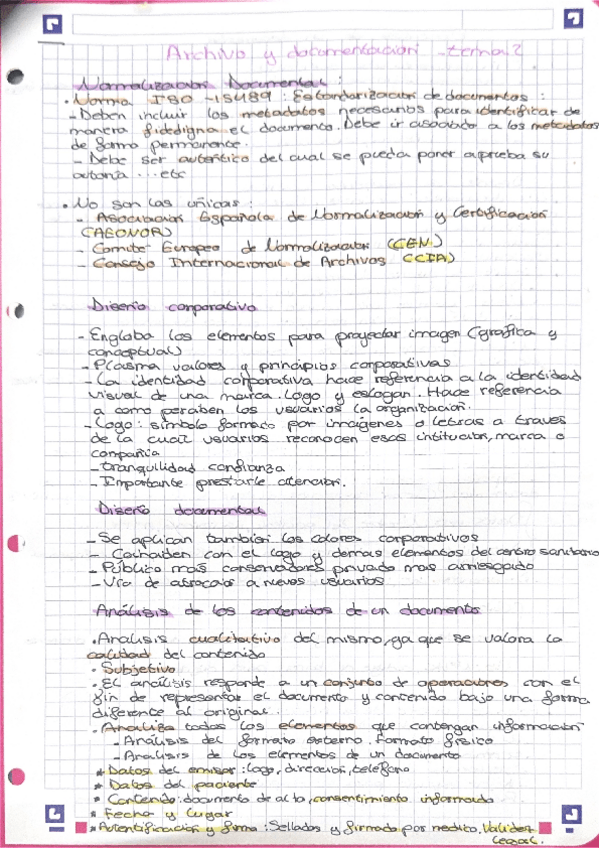 Archivo y documentación - tema 2
Normalización Documental :
• Norma ISO -15489 : Estandarización de documentos :
- Deben incluir los metadatos necesarios para identificar de
manera fidedigna el documento. Debe ir asociado a los metadatos
de forma permanente.
- Debe ser auténtico del cual se pueda poner a prueba su
autoría ... etc
• No son las únicas :
- Asociación Española de Normalización y Certificación
(AENOR)
- Comité Europeo de Normalización (CEN)
- Consejo Internacional de Archivos (CIA)
Diseño corporativo
- Engloba los elementos para proyectar imagen (gráfica y
conceptual)
- Plasma valores y principios corporativas
- La identidad corporativa hace referencia a la identidad
visual de una marca. Logo y eslogan. Hace referencia
a como perciben los usuarios la organización.
- Logo: símbolo formato por imágenes o letras a traves
de la cual usuarios reconocen esas intitución, marca o
compañia
- tranquilidad confianza
- Importante prestarle atención.
Diseño documental
- Se aplican tambien los colores corporativos
- Coinciden con el logo y demás elementos del centro sanitario
- Público más conservadores privado más arriesgado
- Vía de a nuevos usuarios
Análisis de los contenidos de un documento
• Analisis cualitativo del mismo, ya que se valora la
calidad del contenido
• Subjetivo
• El análisis responde a un conjunto de operaciones con el
fin de representar el documento y contenido bajo una forma
diferente al original.
• Analiza todos los elementos que contengan información
- Análisis del formato externo. Formato físico
- Analisis de los elementos de un documento
* Datos del emisor: logo, dirección, teléfono
* Datos del paciente
* Contenido: documento de alta, consentimiento informado
* Fecha y Lugar
* Autentificación y firma : Sellados y firmado por medico, Validez
legal.